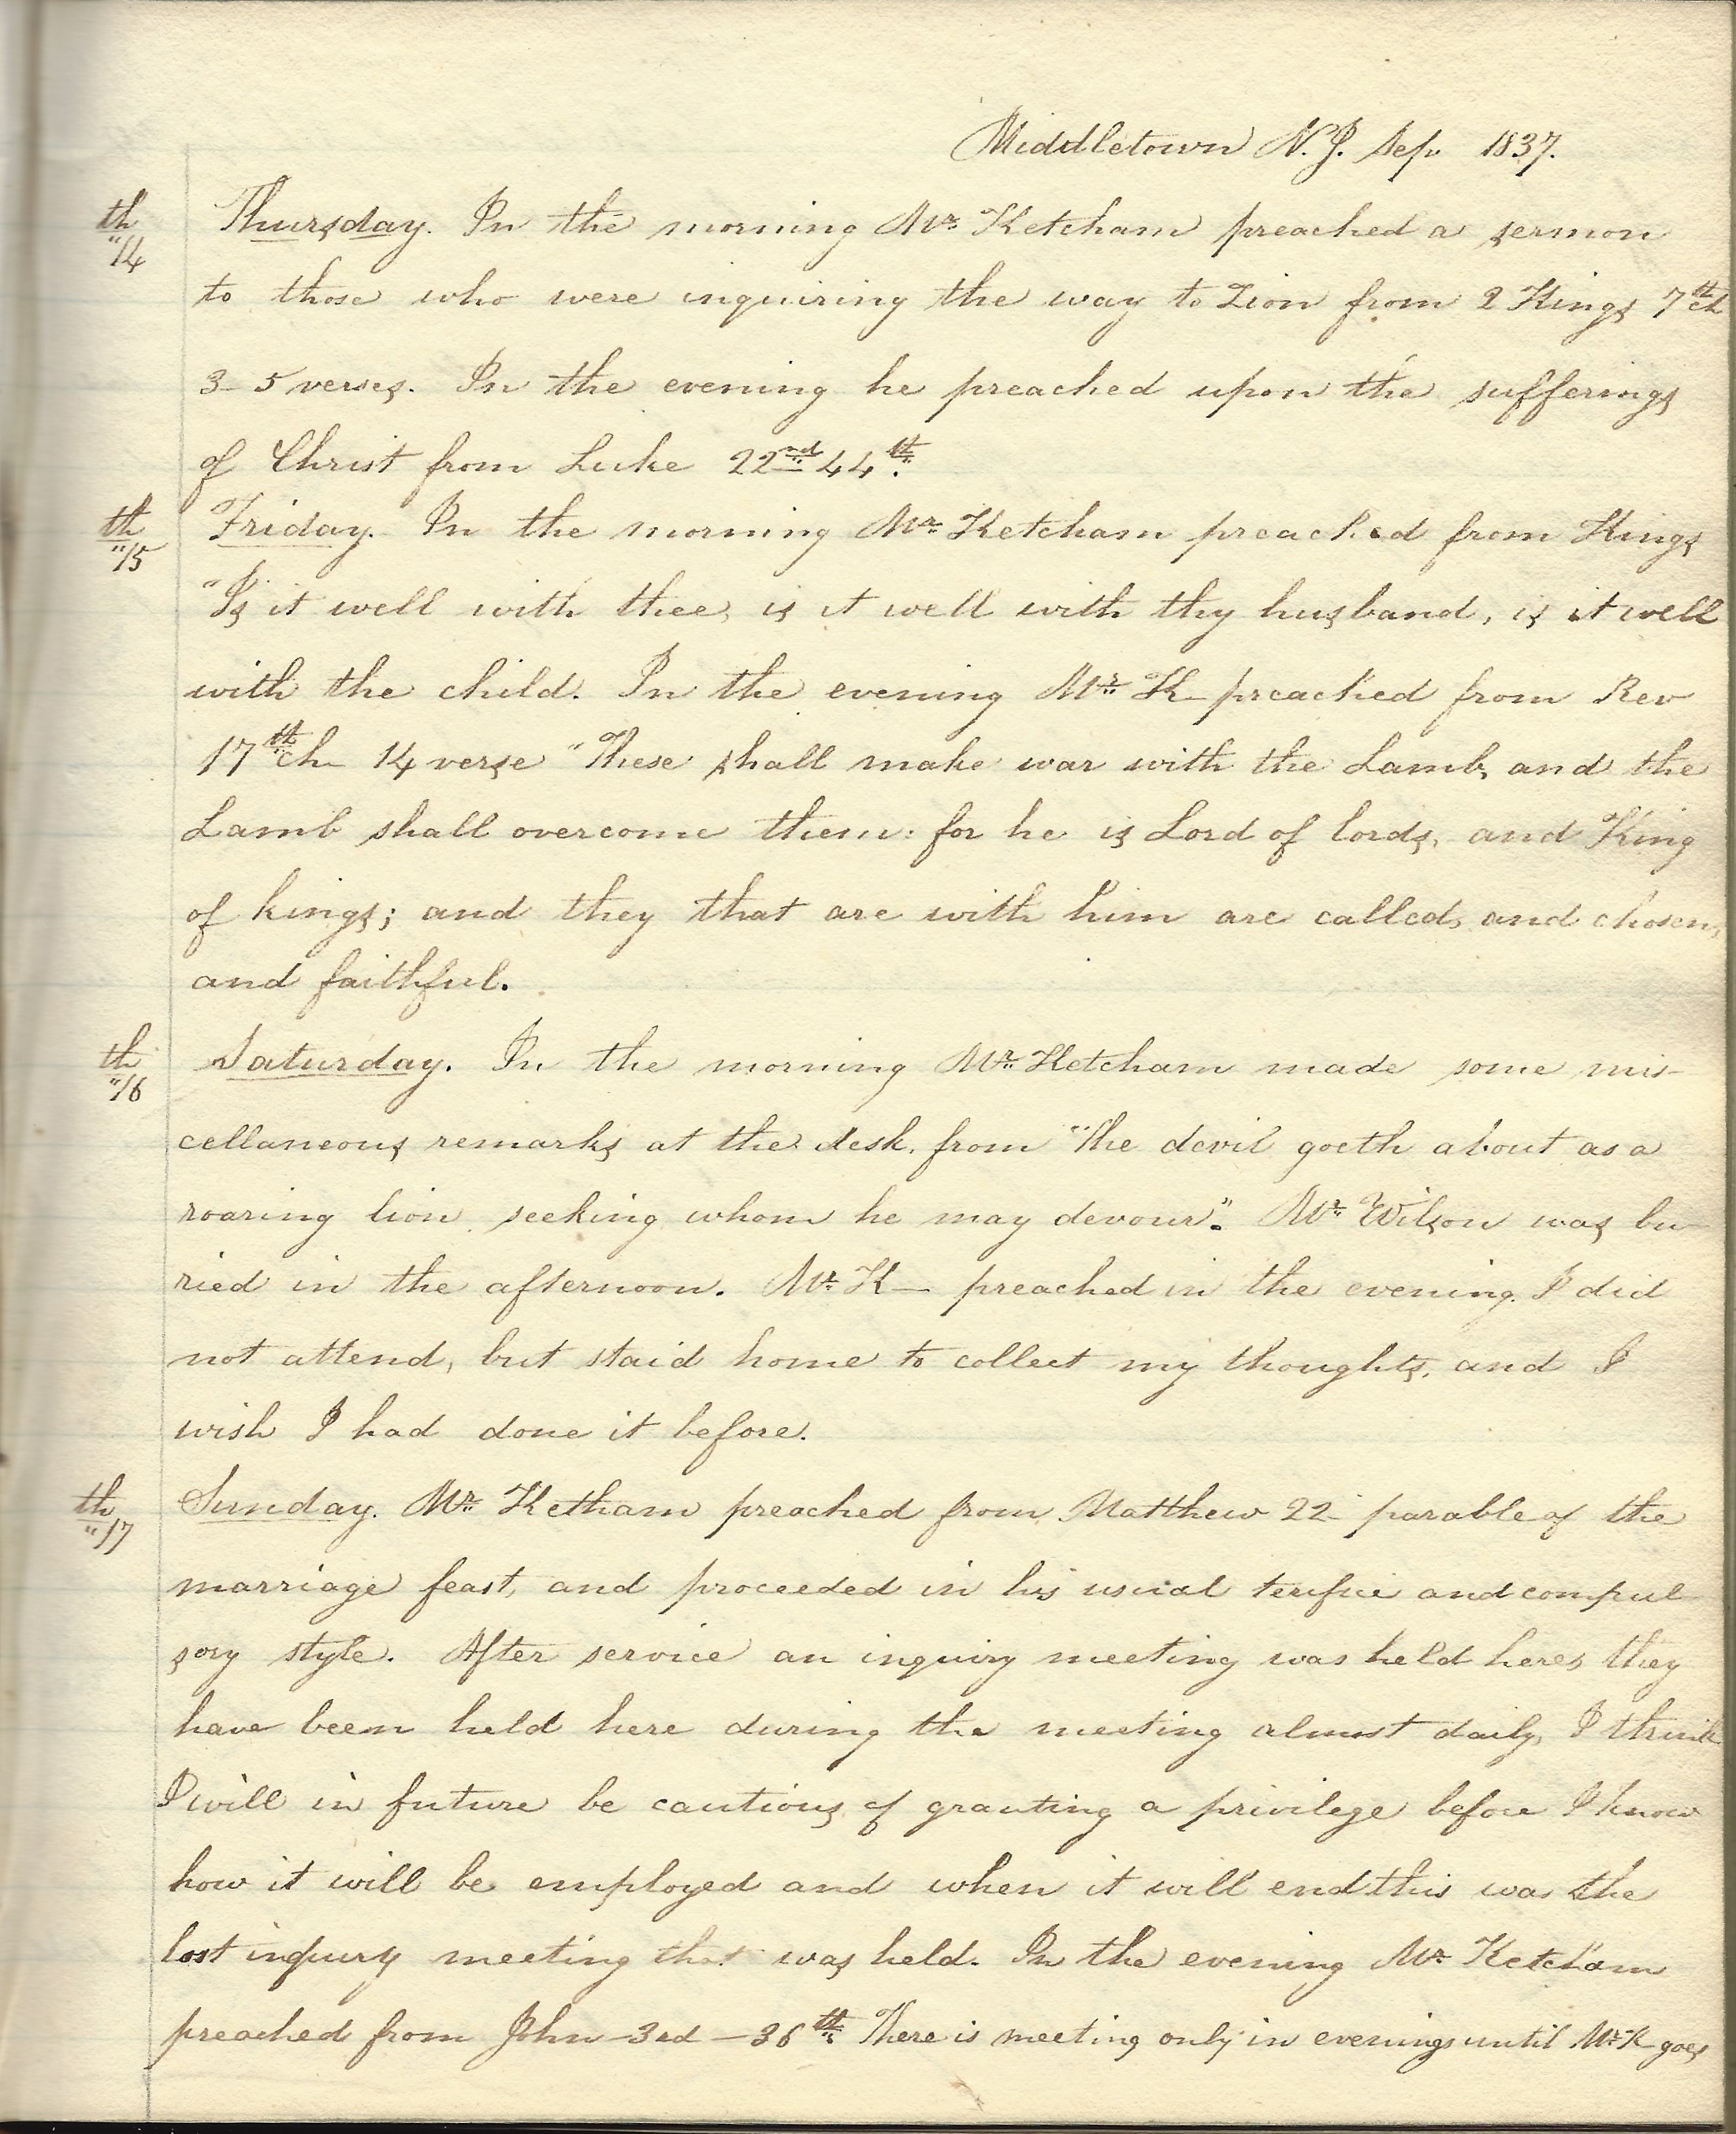 Middletown N.J. Sep. 1837.
th
"14
Thursday. In the morning Mr. Ketcham preached a sermon
to those who were inquiring the way to Zion from 2 Kings 7th ch
3-5 verses. In the evening he preached upon the sufferings
of Christ from Luke 22nd 44th.
th
"15
Friday. In the morning Mr. Ketcham preached from Kings
"Is it well with thee, is it well with thy husband, is it well
with the child. In the evening Mr. K- preached from Rev
17th ch- 14 verse "These shall make war with the Lamb, and the
Lamb shall overcome them: for he is Lord of lords, and King
of kings; and they that are with him are called, and chosen,
and faithful.
th
"16
Saturday. In the morning Mr. Ketcham made some mis-
cellaneous remarks at the desk, from "The devil goeth about as a
roaring lion, seeking whom he may devour". Mr. Wilson was bu-
ried in the afternoon. Mr. K- preached in the evening. I did
not attend, but staid home to collect my thoughts, and I
wish I had done it before.
th
"17
Sunday. Mr. Ketham preached from Matthew 22- parable of the
marriage feast, and proceeded in his usual terific and compul-
sory style. After service an inquiry meeting was held here, they
have been held here during the meeting almost daily, I think
I will in future be cautious of granting a privilege before I know
how it will be employed and when it will end this was the
last inquiry meeting that was held. In the evening Mr. Ketcham
preached from John-3rd-36th. There is meeting only in evenings until Mr. K- goes